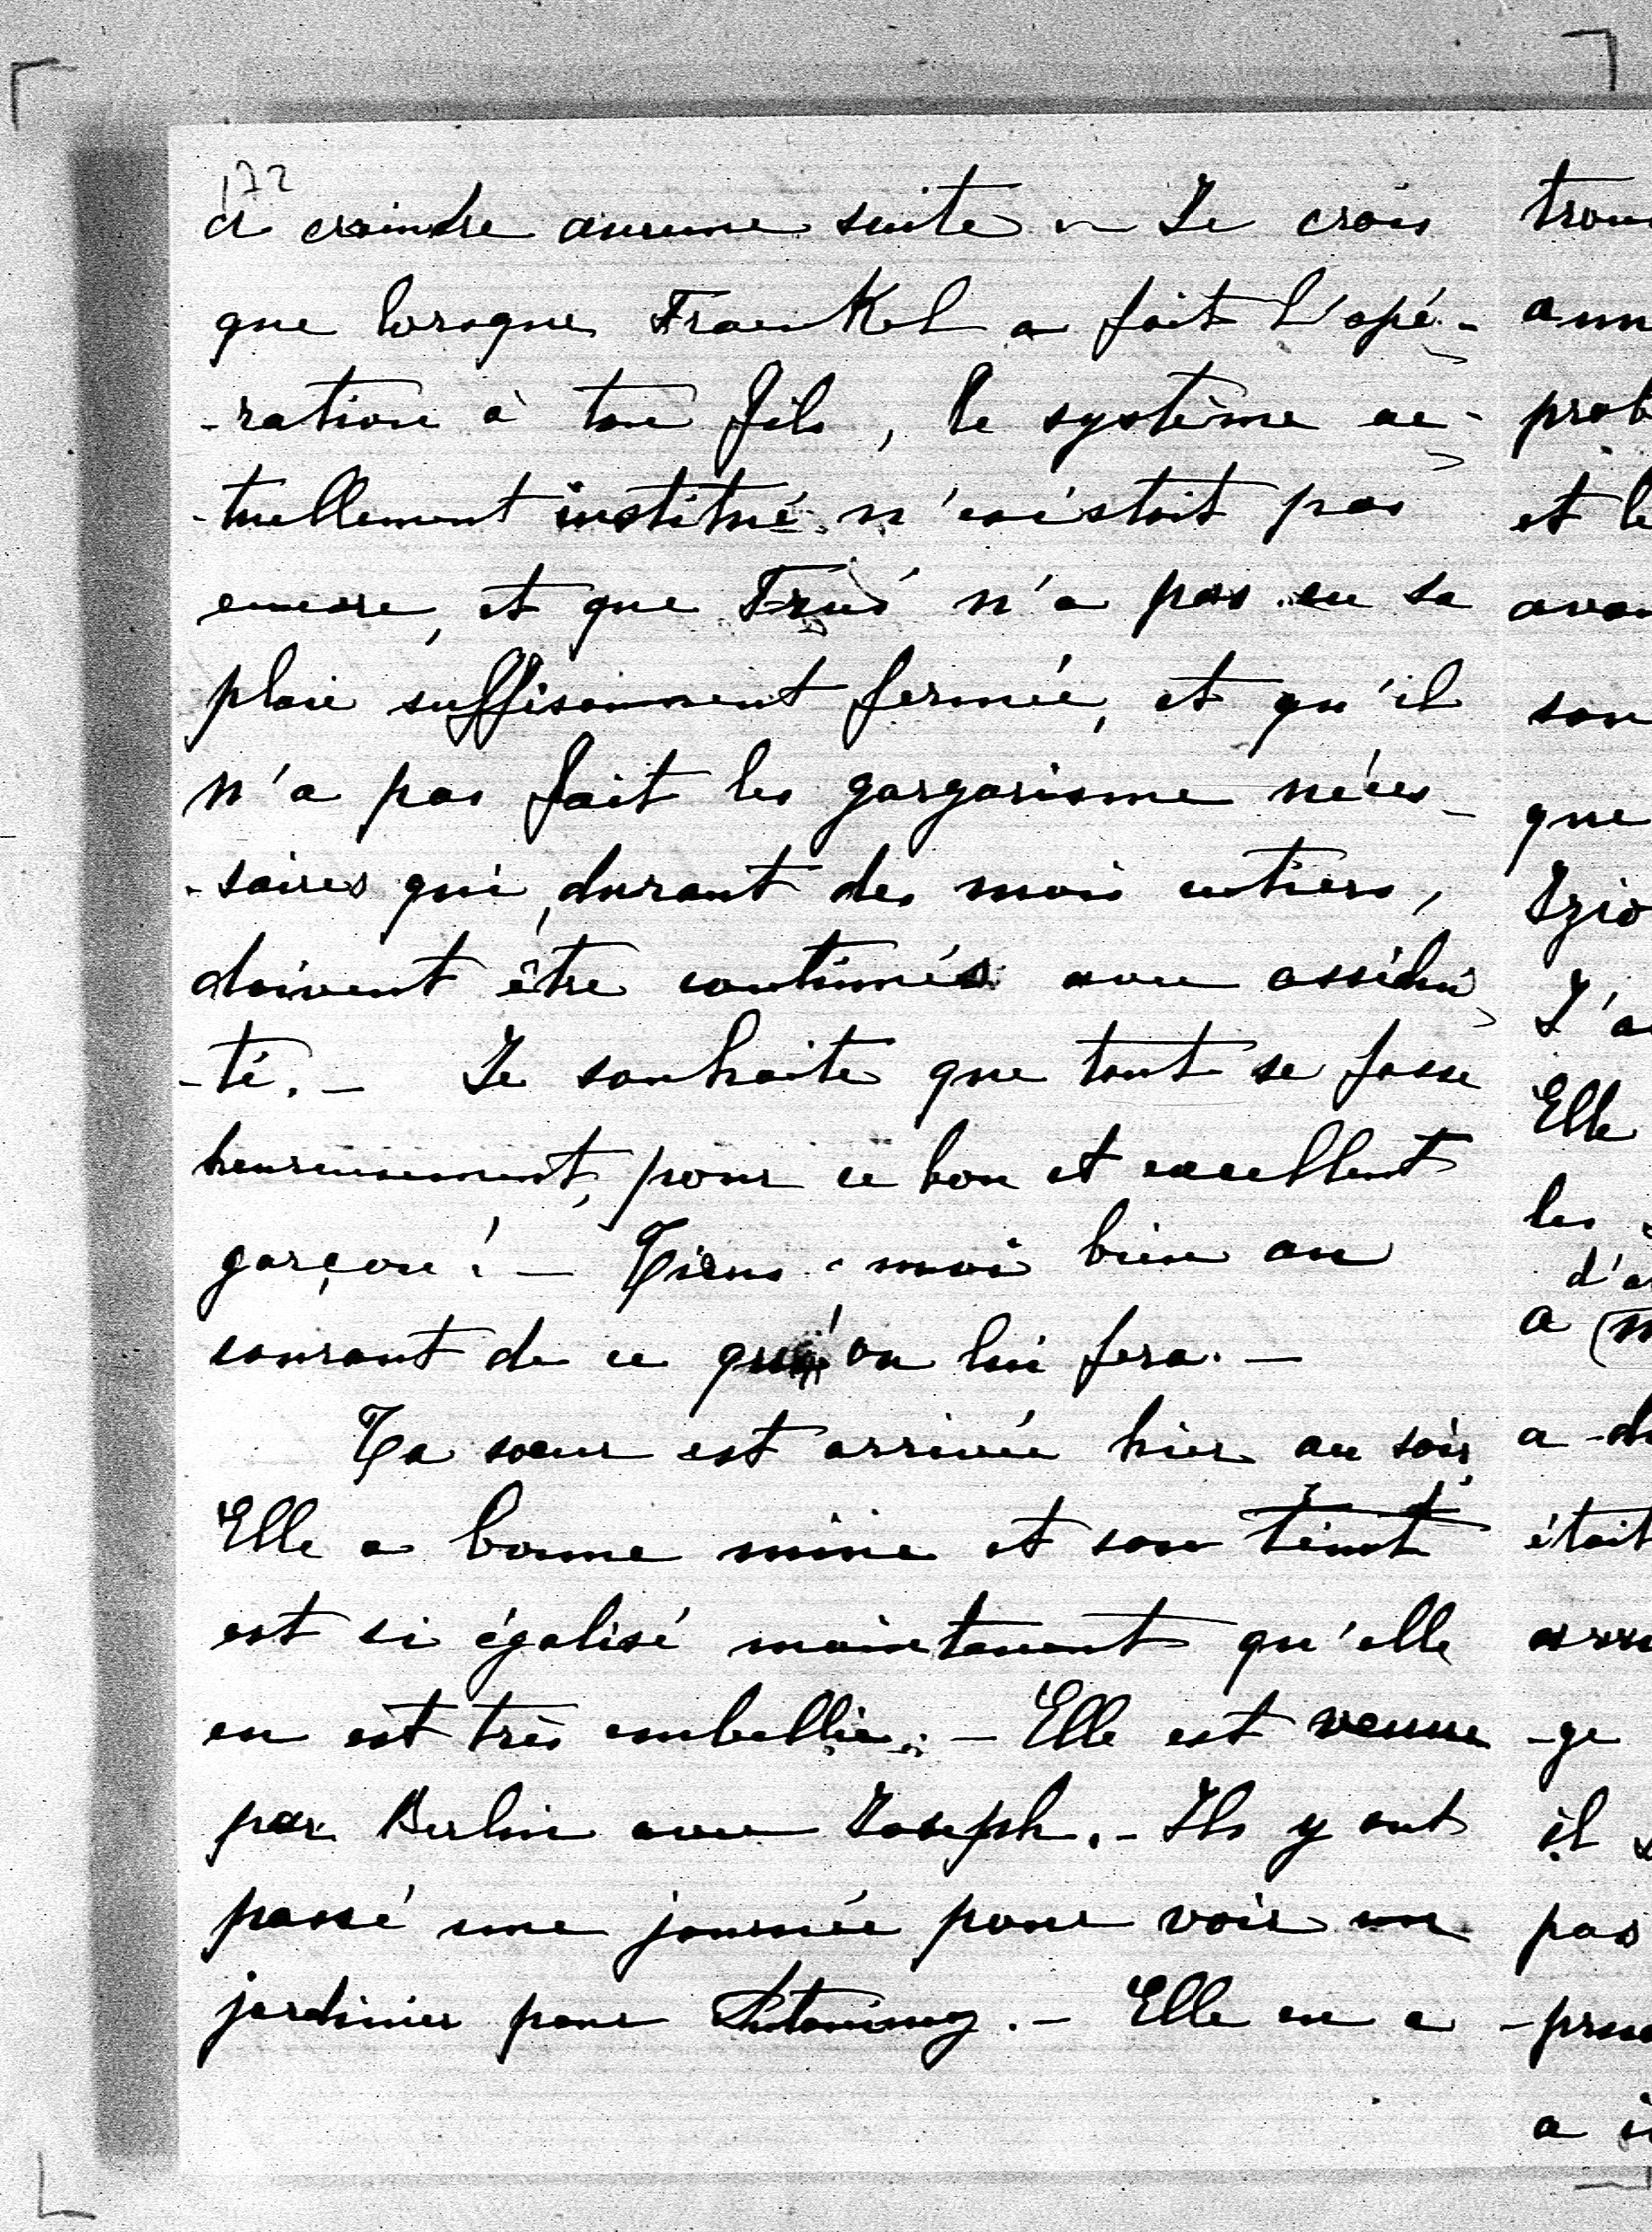 172
à craindre aucune suite ~ Je crois
que lorsque Fraenkel a fait l'opé-
-ration à ton fils, le système ac-
-tuellement institué n'existait pas
encore, et que n'a pas eu sa
plaie suffisamment fermée, et qu'il
n'a pas fait les gargarisme néces-
-saires qui, durant des mois entiers,
doivent être continués avec assidui
-té. _ Je souhaite que tout se fasse
heureusement, pour ce bon et excellent
garçon! _ Tiens-moi bien au
courant de ce qu'on lui fera. _
Ta sœur est arrivée hier au soir,
Elle a bonne mine et son teint
est si égalisé maintenant qu'elle
en est très embellie. _ Elle est venue
par Berlin avec Joseph. - Ils y ont
passé une journée pour voir un
jardinier pour . - Elle en a
trou
ann
prob
et le
avai
son
que
Izio
J'a
Elle
les
d'a
a (m
a du
était
arra
-ge
il s
pas
-prou
a i